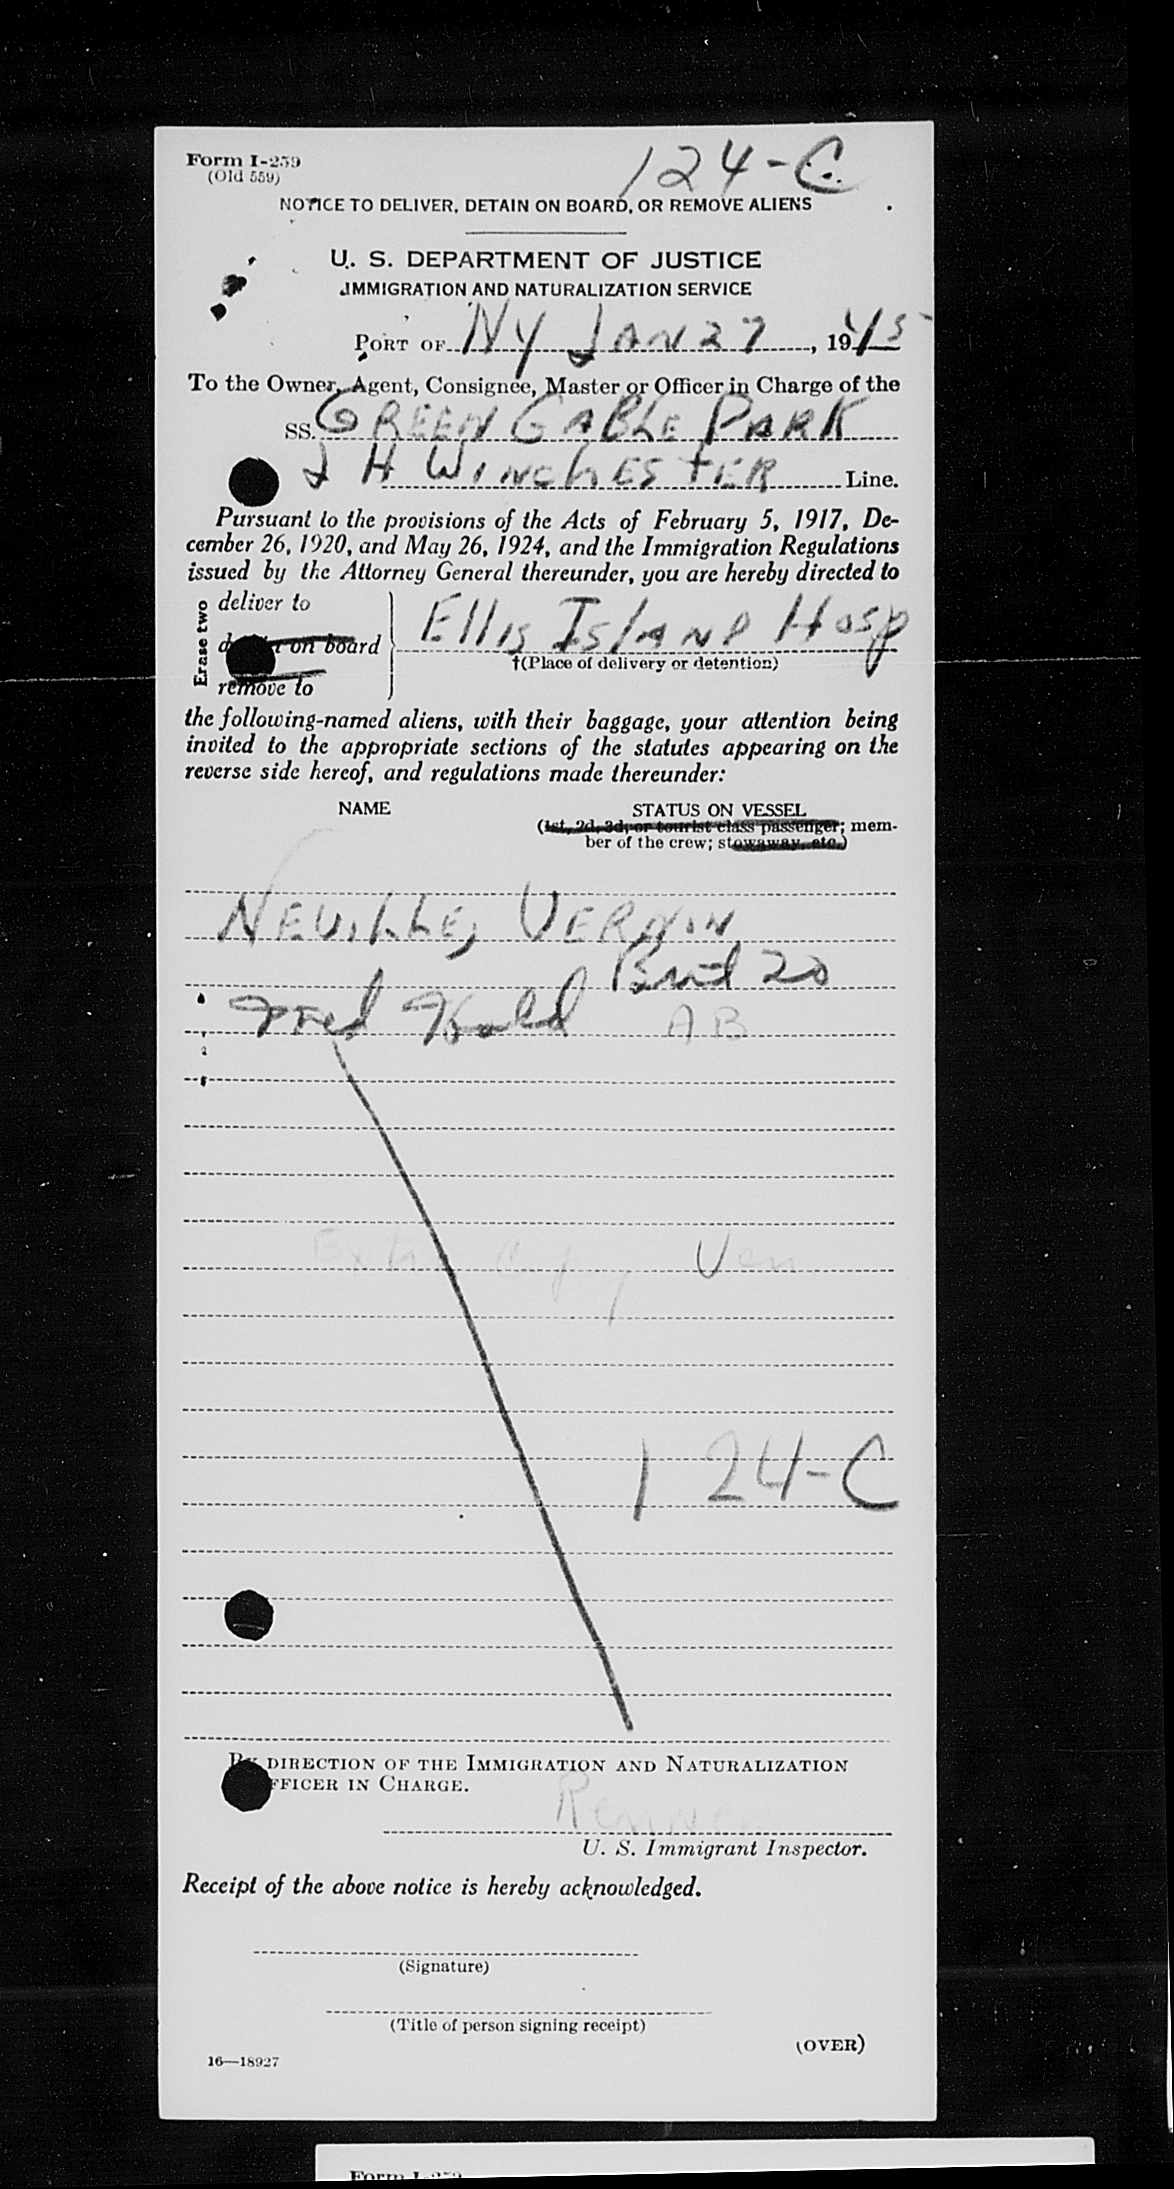 Form I-259
(Old 559)
124-C
NOTICE TO DELIVER, DETAIN ON BOARD, OR REMOVE ALIENS
U. S. DEPARTMENT OF JUSTICE
IMMIGRATION AND NATURALIZATION SERVICE
PORT OF NY JAN 27, 1945
To the Owner, Agent, Consignee, Master or Officer in Charge of the
SS. GREEN GABLE PARK
J H WINCHESTER Line.
Pursuant to the provisions of the Acts of February 5, 1917, De-
cember 26, 1920, and May 26, 1924, and the Immigration Regulations
issued by the Attorney General thereunder, you are hereby directed to
Erase two
deliver to
on board
remove to
Ellis ISLAND Hosp
†(Place of delivery or detention)
the following-named aliens, with their baggage, your attention being
invited to the appropriate sections of the statutes appearing on the
reverse side hereof, and regulations made thereunder:
NAME
STATUS ON VESSEL
(1st, 2d, 3d, or tourist class passenger; mem-
ber of the crew; stowaway, etc.)
NEVILLE, VERNON
Brit 20
Med Hold AB
Extra Copy Ven
124-C
BY DIRECTION OF THE IMMIGRATION AND NATURALIZATION
OFFICER IN CHARGE.
U. S. Immigrant Inspector.
Receipt of the above notice is hereby acknowledged.
(Signature)
(Title of person signing receipt)
(OVER)
16—18927
Form I-259